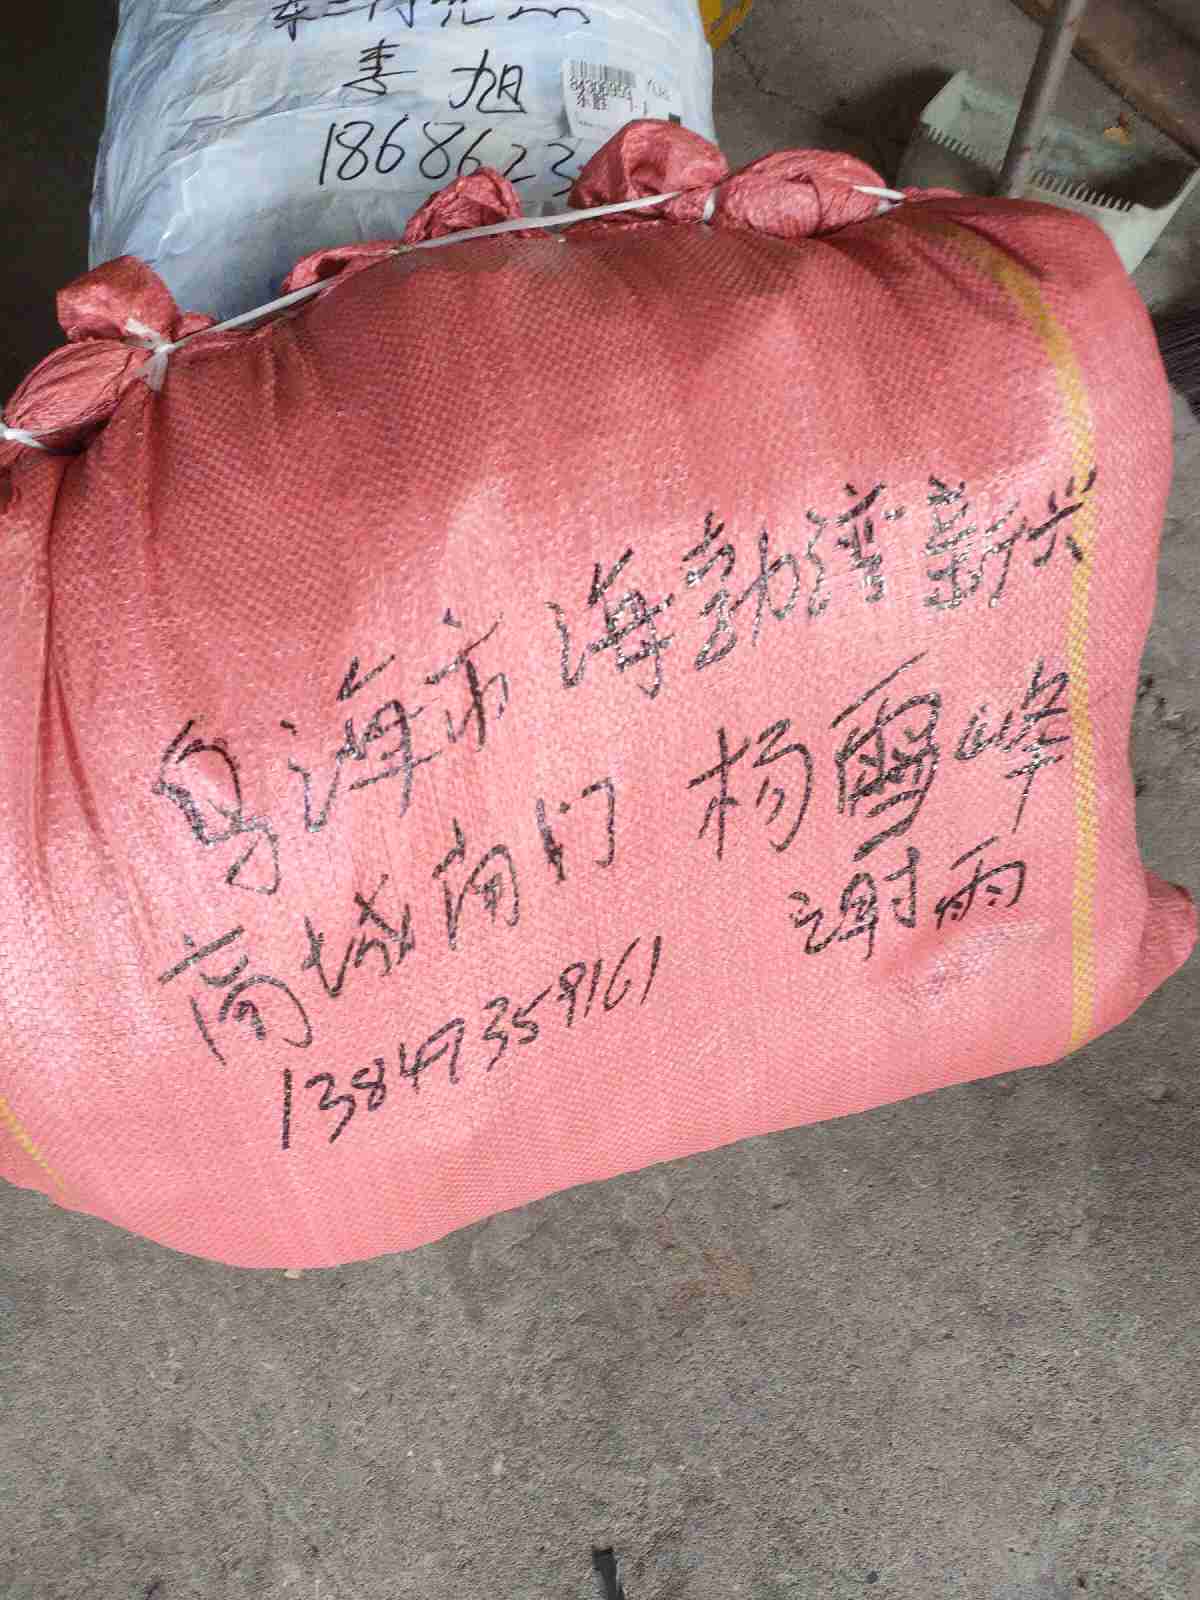 李旭
1868623
乌海市海勃湾新兴
商城南门 杨雪峰
谢雨
13847359161